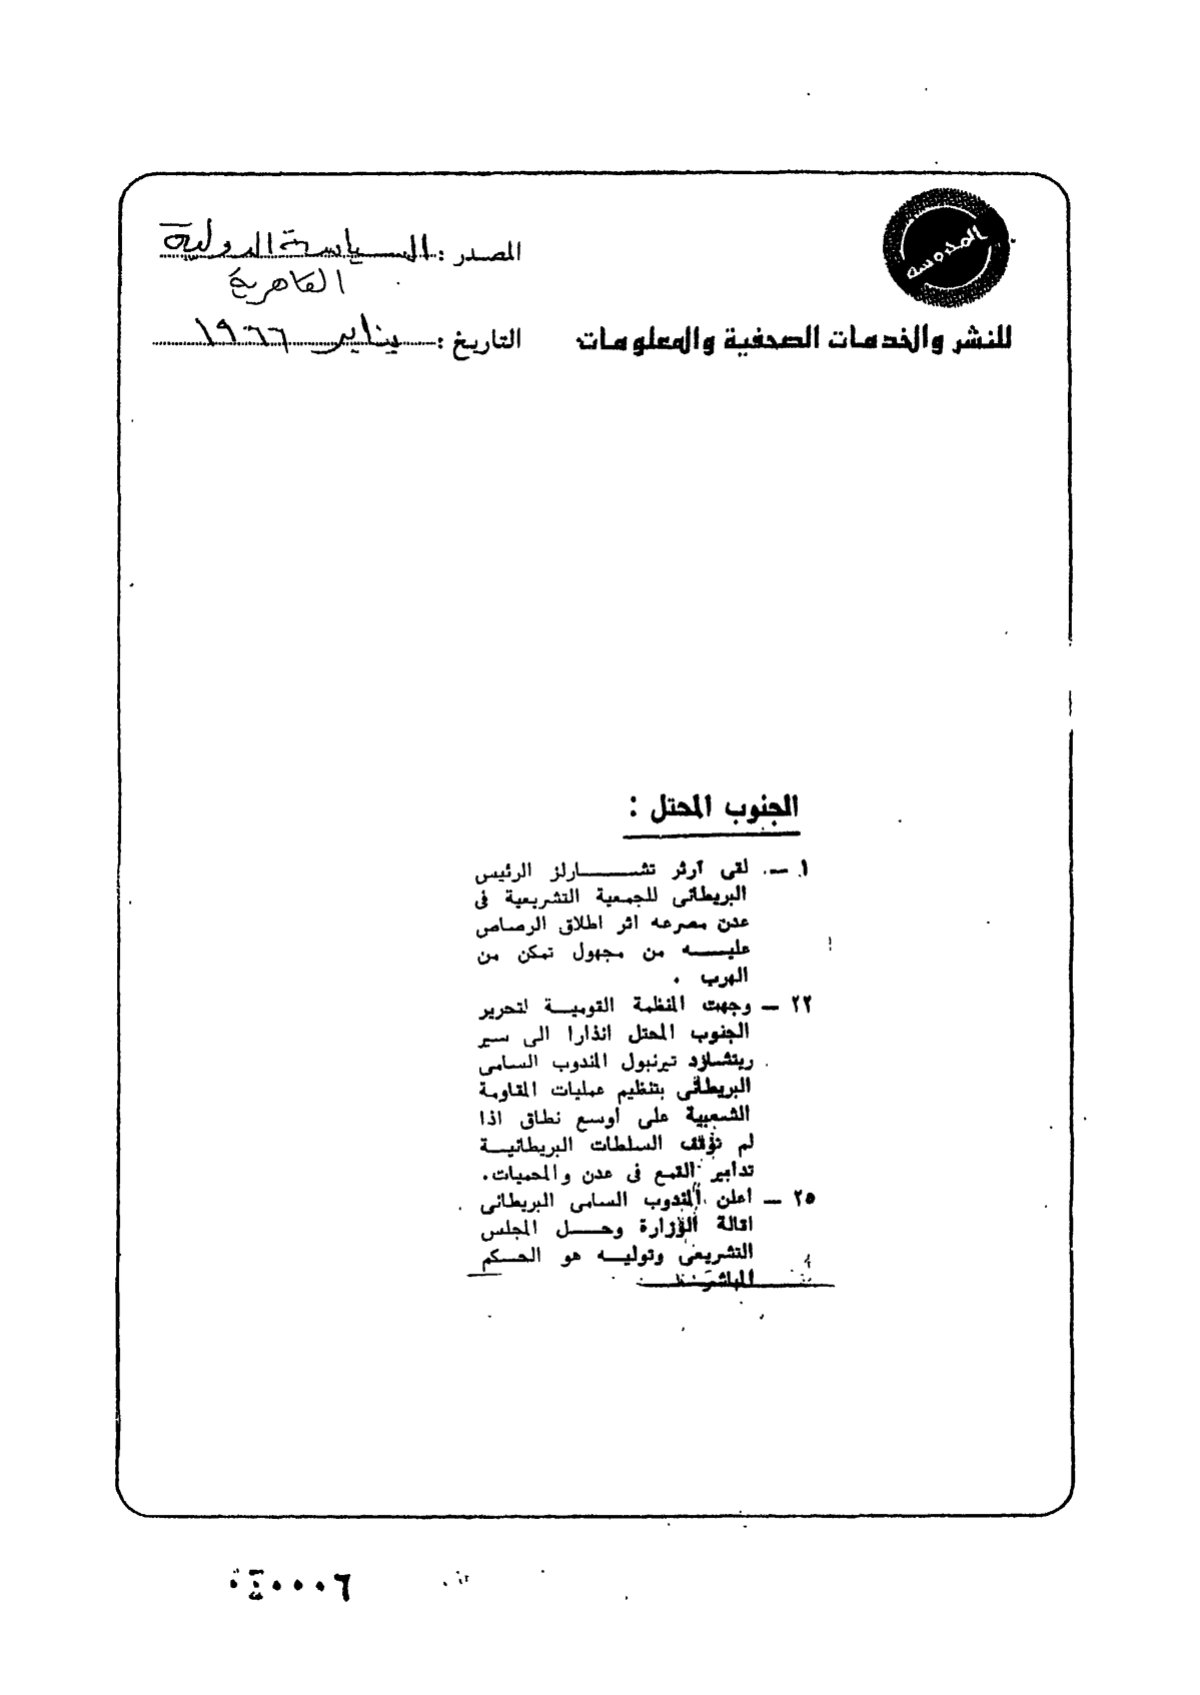 المحروسة
المصدر : السياسة الدولية
القاهرية
للنشر والخدمات الصحفية والمعلومات
التاريخ : يناير ١٩٦٦
الجنوب المحتل :
١ — لقى آرثر تشـــــارلز الرئيس
البريطانى للجمعية التشريعية فى
عدن مصرعه اثر اطلاق الرصاص
عليـــه من مجهول تمكن من
الهرب .
٢٢ — وجهت المنظمة القوميـة لتحرير
الجنوب المحتل انذارا الى سير
ريتشارد تيرنبول المندوب السامى
البريطانى بتنظيم عمليات المقاومة
الشعبية على أوسع نطاق اذا
لم توقف السلطات البريطانيـة
تدابير القمع فى عدن والمحميات .
٢٥ — أعلن المندوب السامى البريطانى
اقالة الوزارة وحـــل المجلس
التشريعى وتوليـه هو الحـكم
المباشر
٠٤٠٠٠٦